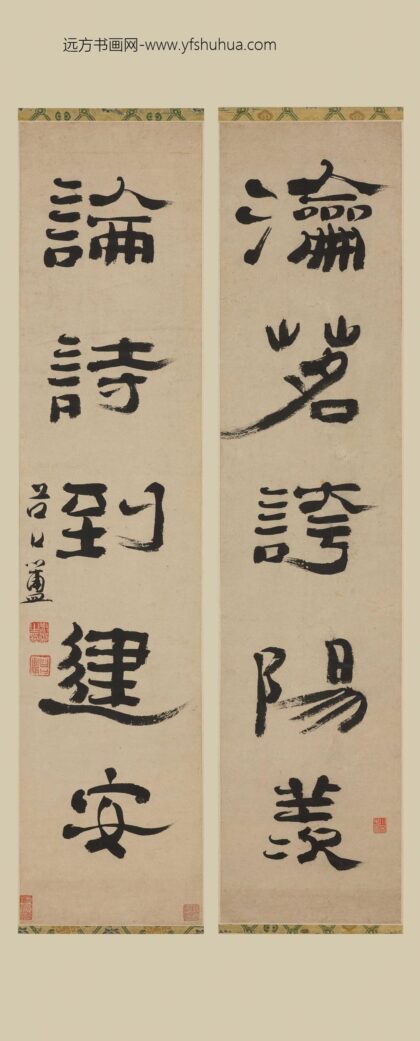 远方书画网-www.yfshuhua.com
瀹茗誇陽羨
論詩到建安